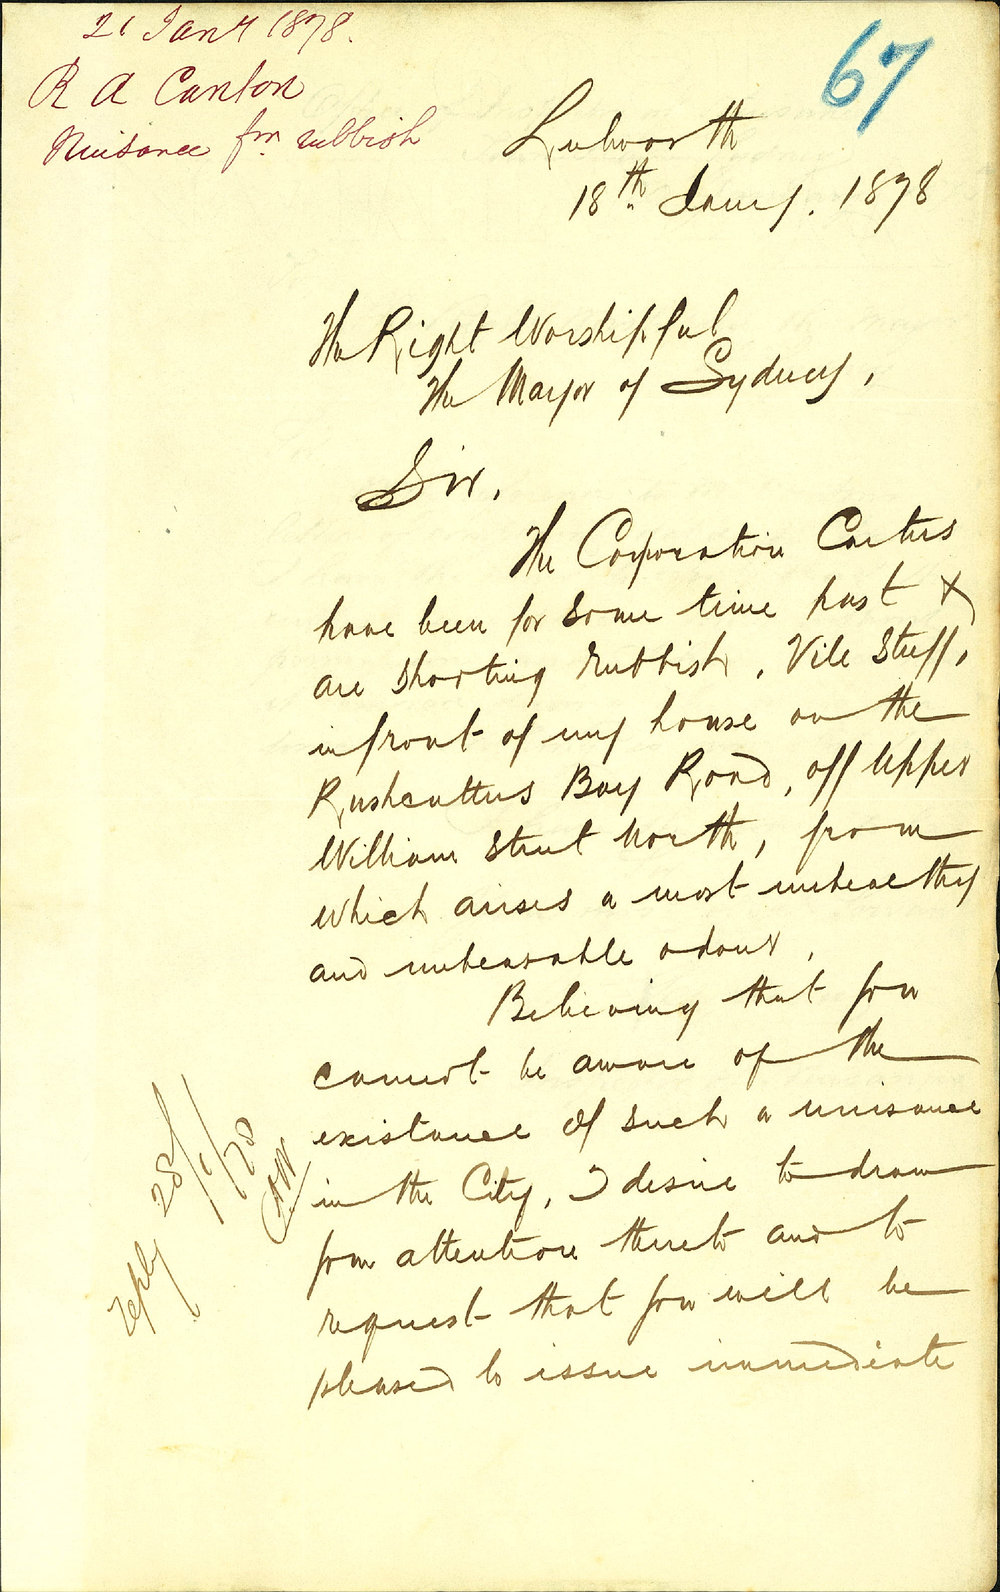 21 Jany 1878.
R A Canton
Nuisance fm rubbish
67
Lulworth
18th Jany. 1878
The Right Worshipful
The Mayor of Sydney,
Sir,
The Corporation Carters
have been for some time past &
are shooting rubbish, Vile Stuff,
in front of my house on the
Rushcutters Bay Road, off Upper
William Street North, from
which arises a most unhealthy
and unbearable odour,
Believing that you
cannot be aware of the
existance of such a nuisance
in the City, I desire to draw
your attention thereto and to
request that you will be
pleased to issue immediate
reply 28/1/78